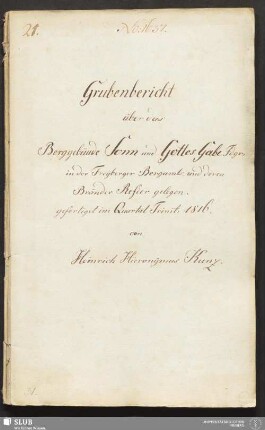 21.
Grubenbericht
über das
Berggebäude Sonn und Gottes Gabe Fdgr.
in der Freyberger Bergamts und deren
Bränder Refier gelegen.
gefertiget im Quartal Trinit. 1816.
von
Heinrich Hieronymus Kunz.
SLUB